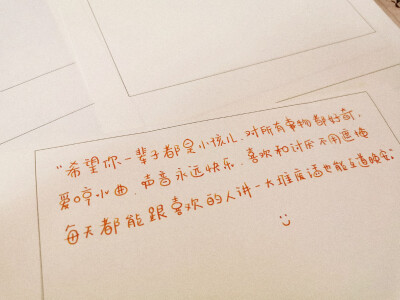 “希望你一辈子都是小孩儿，对所有事物都好奇，
爱哼小曲，声音永远快乐，喜欢和讨厌不用遮掩
每天都能跟喜欢的人讲一大堆废话也能互道晚安”